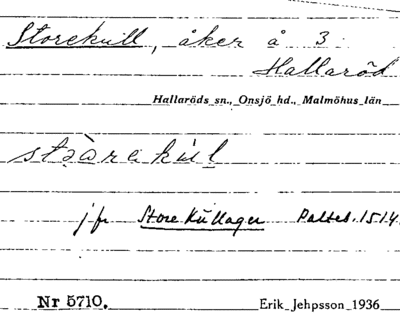 Storekull, åker å 3
Hallaröd
Hallaröds sn., Onsjö hd., Malmöhus län
jfr Store Kullager Palteb. 1514.
Nr 5710. Erik Jehpsson 1936